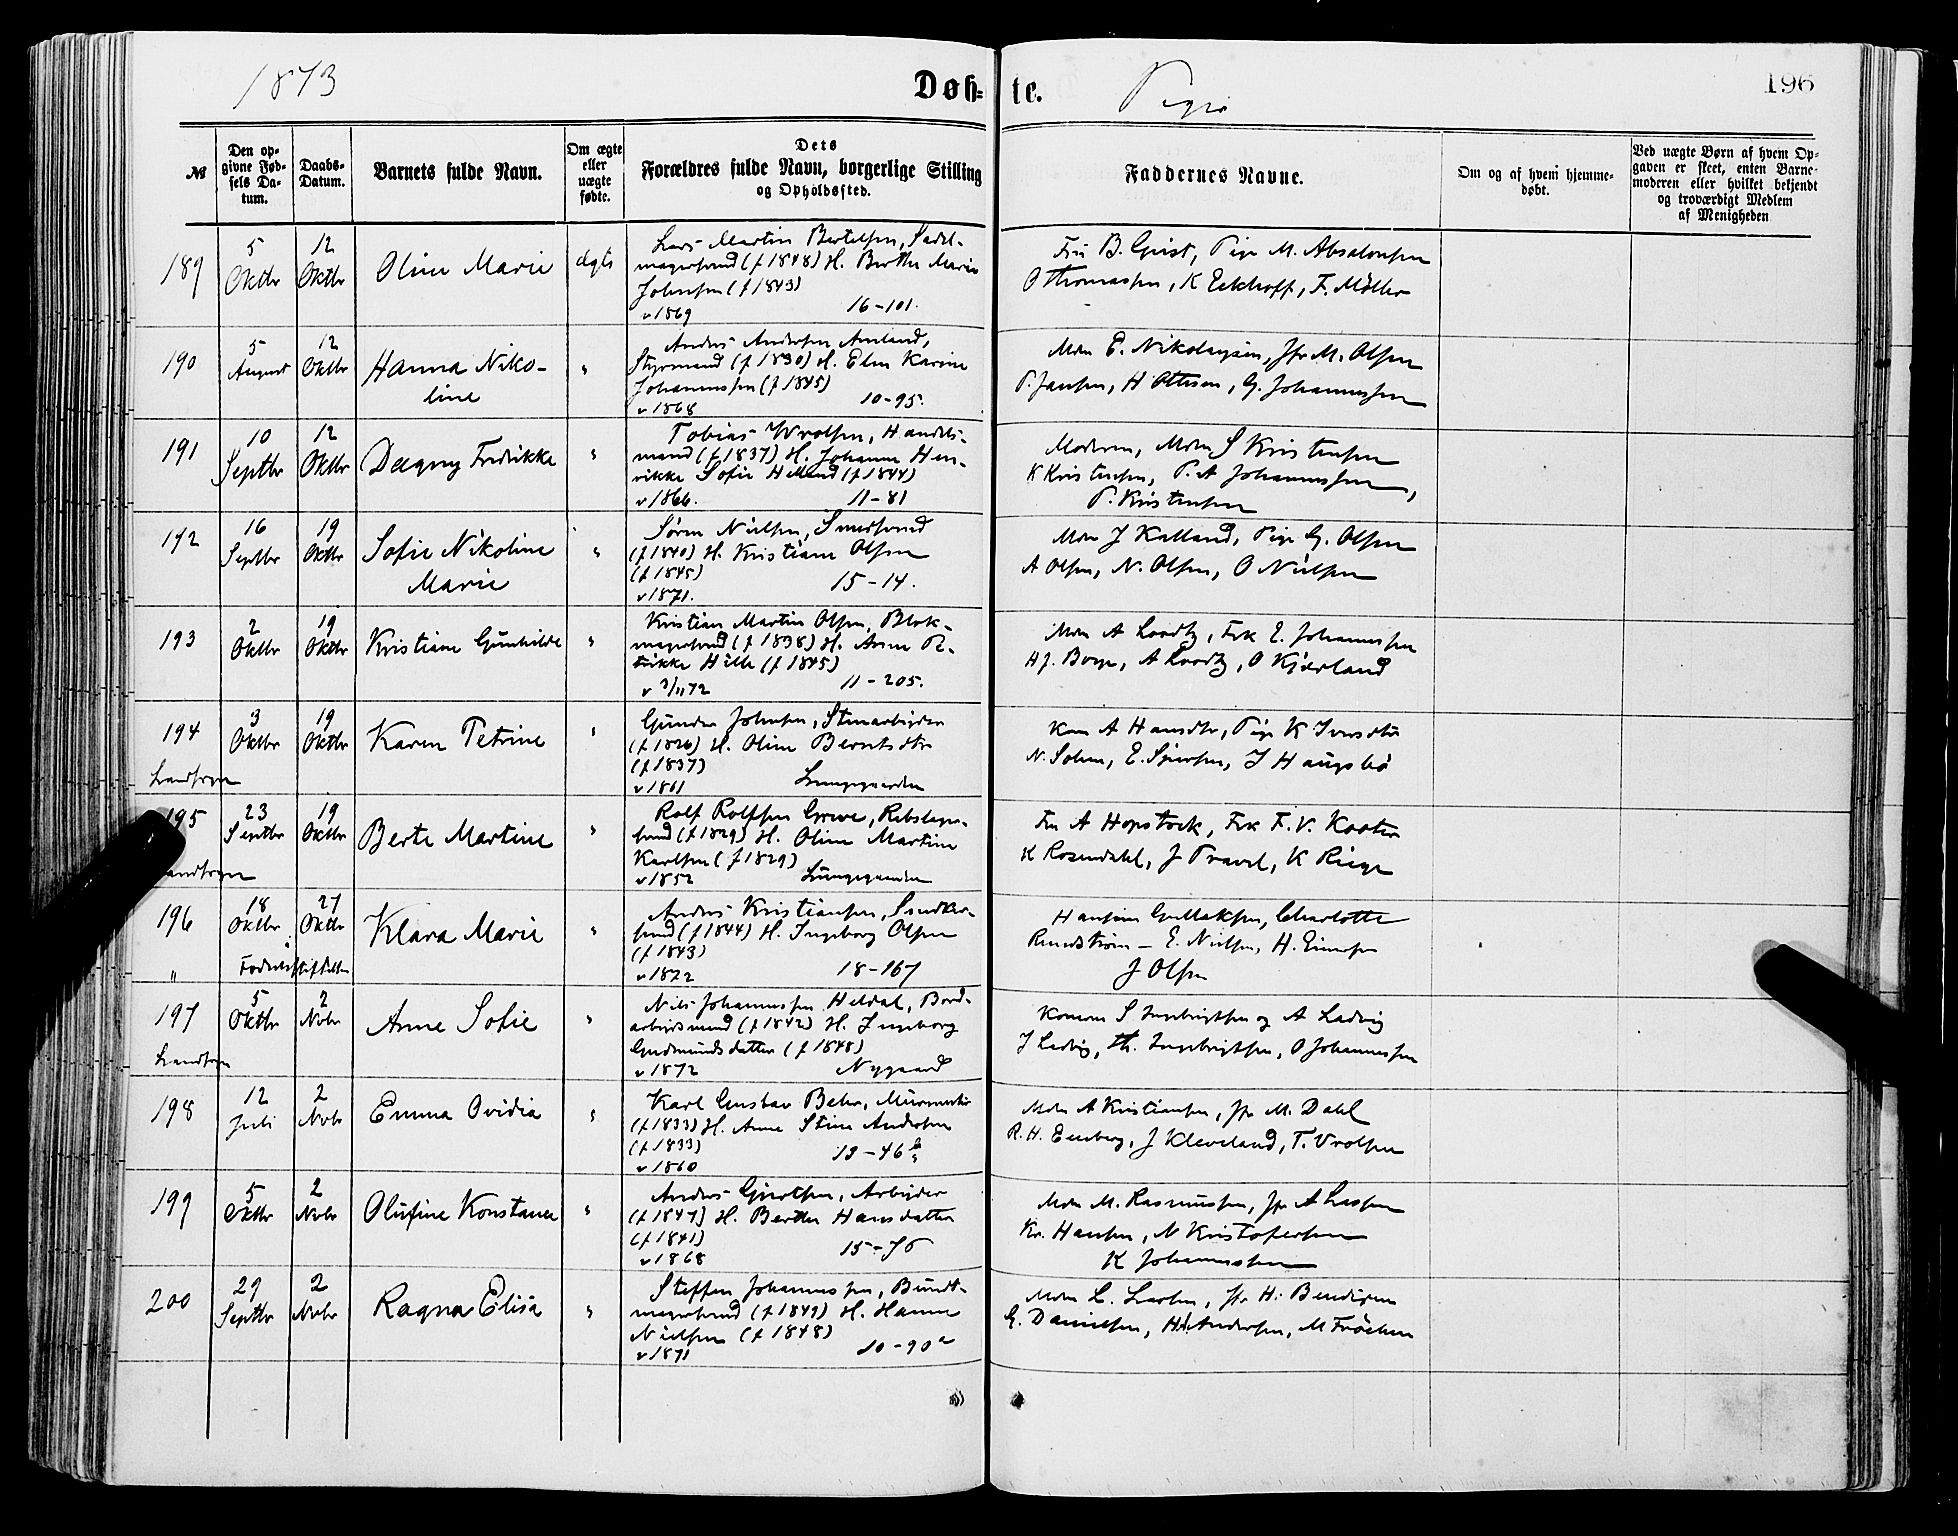 1873 Døb- te. Piger 196
№ Den opgivne Fødsels Datum. Daabs-Datum. Barnets fulde Navn. Om ægte eller uægte fødte. Dets Forældres fulde Navn, borgerlige Stilling og Opholdssted. Faddernes Navne. Om og af hvem hjemmedøbt. Ved uægte Børn af hvem Opgaven er skeet, enten Barnemoderen eller hvilket bekjendt og troværdigt Medlem af Menigheden
189 5 Oktbr 12 Oktbr Oline Marie ægte
Lars Martin Bertelsen, Sadel-
magersvend (f 1848) H. Berthe Marie
Johnsen (f 1843)
v 1869 16-101.
Fru B. Geist, Pige M. Absalonsen
O Thomassen, K Eckhoff, F. Møller
190 5 August 12 Oktbr Hanna Niko-
line "
Anders Andersen Amland,
Styrmand (f 1830) H. Elen Karine
Johannessen (f 1845)
v 1868 10-95.
Mdm E. Nikolaysen, Jfr M. Olsen
P. Jansen, H Ottesen, G. Johannessen
191 10 Septbr 12 Oktbr Dagny Fredrikke "
Tobias Wrolsen, Handels-
mand (f 1837) H. Johanne Hen-
rikke Sofie Helland (f 1844)
v 1866. 11-81
Moderen, Mdm S Kristensen
K Kristensen, P. A Johannessen,
P. Kristensen
192 16 Septbr 19 Oktbr Sofie Nikoline
Marie "
Søren Nielsen, Smedsvend
(f 1840) H. Kristiane Olsen
(f 1845)
v 1871. 15-14.
Mdm J Kalland, Pige G. Olsen
A Olsen, N. Olsen, O Nielsen
193 2 Oktbr 19 Oktbr Kristiane Gunhilde "
Kristian Martin Olsen, Blok-
magersvend (f 1838) H. Anne R-
rikke Hille (f 1845)
v 3/11 72 11-205.
Mdm A Loodtz, Frk E. Johannessen
H J. Borge, A Loodtz, O Kjærland
194 3 Oktbr 19 Oktbr Karen Petrine "
Landsogn
Gunder Johnsen, Stenarbeider
(f 1826) H. Oline Berntsdtr
(f 1837)
v 1861 Lungegaarden
Kone A Hansdtr, Pige K Iversdtr
N. Solem, E. Sjursen, J Haugsbø
195 23 Septbr 19 Oktbr Berte Martine "
Landsogn
Rolf Rolfsen Greve, Rebslager-
svend (f 1829) H. Oline Martine
Karlsen (f 1829)
v 1852 Lungegaarden
Fru A Hopstock, Frk F. V. Koster
K Rosendahl, J Travel, K Riege
196 18 Oktbr 27 Oktbr Klara Marie "
" Fødselsstiftelsen
Anders Kristiansen, Snedker-
svend (f 1844) H. Ingeborg Olsen
(f 1843)
v 1872 18-167
Hansine Gullaksen, Charlotte
Rundstrøm - E. Nielsen, H. Einersen
J Olsen
197 5 Oktbr 2 Novbr Anne Sofie "
Landsogn
Nils Johannessen Heldal, Bord-
arbeidsmand (f 1842) H. Ingeborg
Gudmundsdatter (f 1848)
v 1872 Nygaard
Konerne S Ingebrigtsen og A Ladvig
J Ladvig, Th. Ingebrigtsen, O Johannessen
198 12 Juli 2 Novbr Emma Ovidia "
Karl Gustav Behr, Murmester
(f 1833) H. Anne Stine Andersen
(f 1833)
v 1860 13-46 b
Mdm A Kristiansen, Jfr M. Dahl
R. H. Eenberg, J Kleveland, T. Vrolsen
199 5 Oktbr 2 Novbr Olufine Konstance "
Anders Gjertsen, Arbeider
(f 1847) H. Berthe Hansdatter
(f 1841)
v 1868 15-76
Mdm M. Rasmussen, Jfr A Lassen
Kr. Hansen, N Kristofersen
K Johannessen
200 29 Septbr 2 Novbr Ragna Elisa "
Steffen Johannessen, Bundt-
magersvend (f 1849) H. Hanne
Nielsen (f 1848)
v 1871 10-90 a
Mdm L. Larsen, Jfr H. Bendixen
G. Danielsen, H. Andersen, M Frøchen